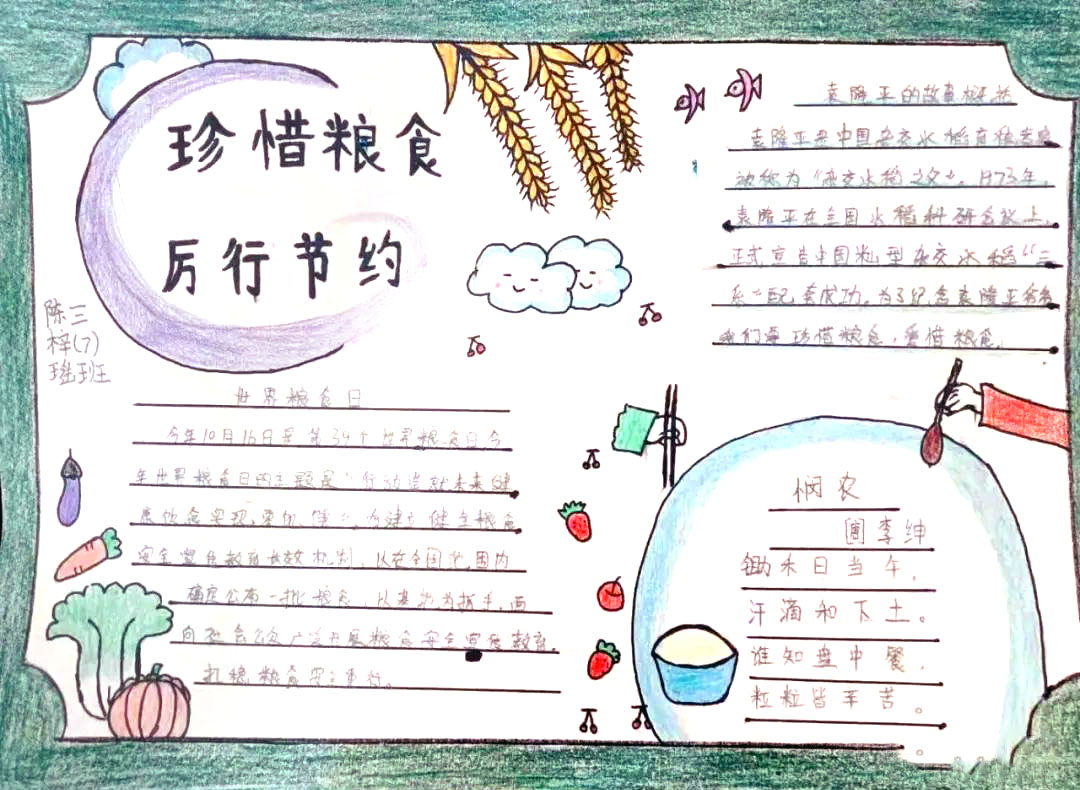 珍惜粮食
厉行节约
陈三
梓(7)
瑶班
世界粮食日
今年10月16日是第39个世界粮食日今
年世界粮食日的主题是"行动造就未来健
康饮食实现零饥饿"。为建立健全粮食
安全宣传教育长效机制,以在全国范围内
确定公布一批粮食,以基地为抓手,面
向社会公众广泛开展粮食安全宣传教育。
扛稳粮食安全重任。
袁隆平的故事
袁隆平是中国杂交水稻育种专家
被称为"杂交水稻之父"。1973年,
袁隆平在全国水稻科研会议上,
正式宣告中国籼型杂交水稻"三
系"配套成功。为了纪念袁隆平爷爷
我们要珍惜粮食,爱惜粮食。
悯农
李绅
锄禾日当午,
汗滴和下土。
谁知盘中餐,
粒粒皆辛苦。
。